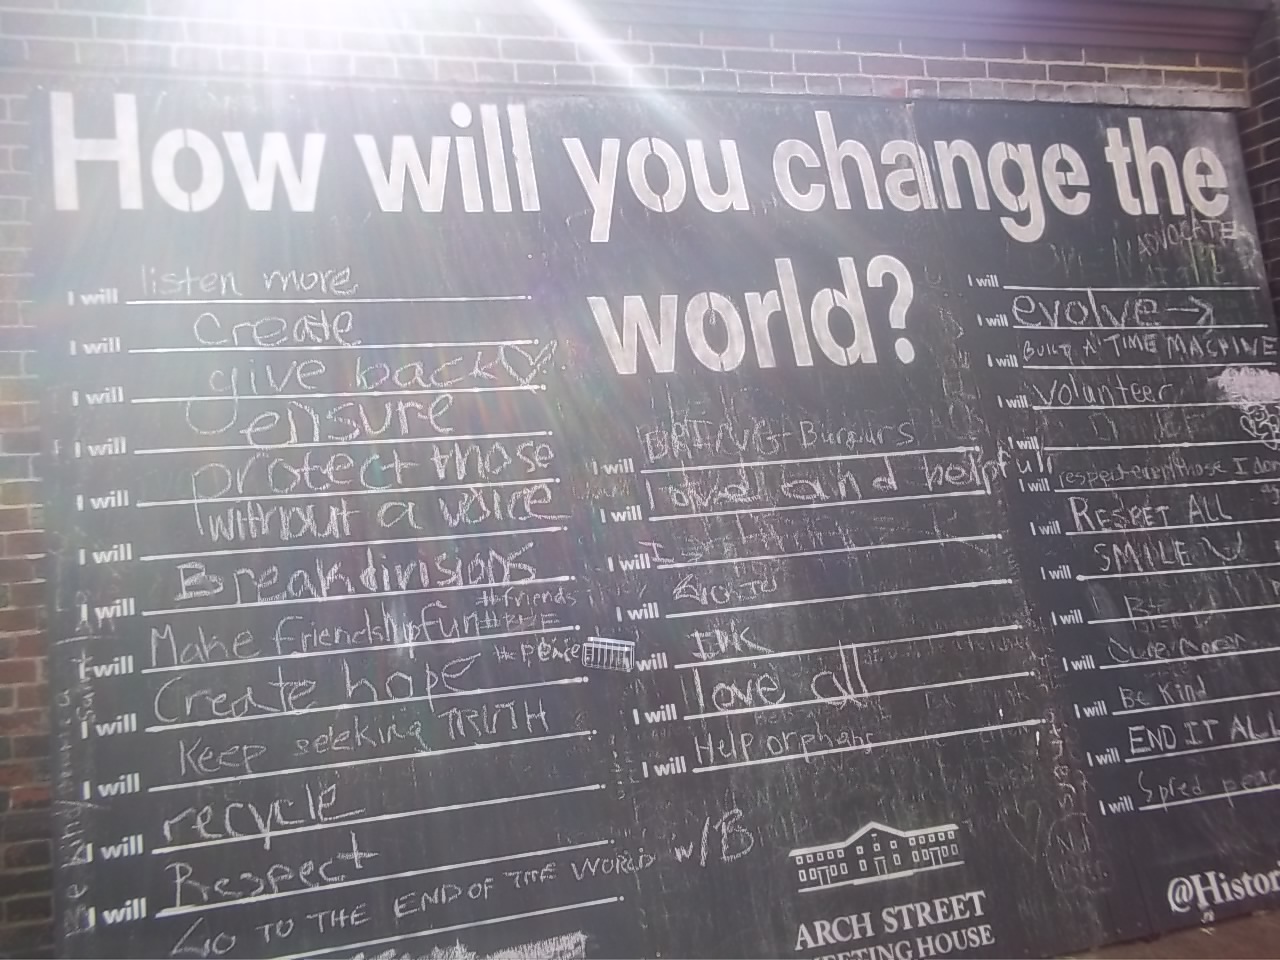 How will you change the
world?
I will listen more
I will Create
I will give back
I will ensure
I will protect those
I will without a voice
I will Break divisions
#friends
I will Make friendship fun
#peace
I will Create hope
I will Keep seeking TRUTH
I will recycle
I will Respect
I will GO TO THE END OF THE WORLD w/B
I will BRING Burgurs
I will love and helpful
I will I
I will Go to
I will INK
I will love all
I will Help orphans
ADVOCATE
I will
I will evolve →
I will BUILT A TIME MACHINE
I will Volunteer
I will
I will respect even those I don
I will RESPET ALL
I will SMILE
I will BE
I will Cure
I will Be Kind
I will END IT ALL
I will Spred peac
ARCH STREET
MEETING HOUSE
@Histor